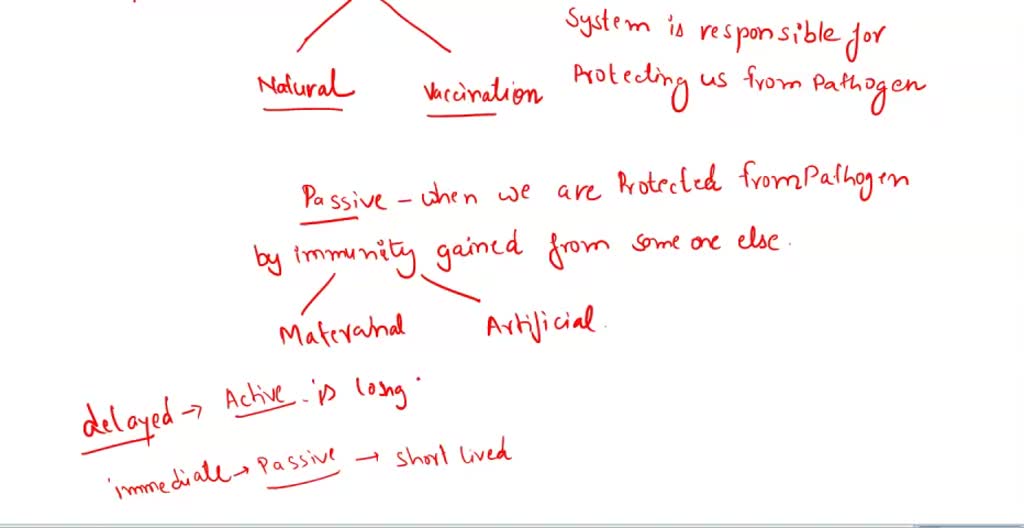 System is responsible for
Natural Vaccination Protecting us from Pathogen
Passive - when we are Protected from Pathogen
by immunity gained from some one else.
Materanal Artificial.
delayed → Active is long.
immediate → Passive → short lived